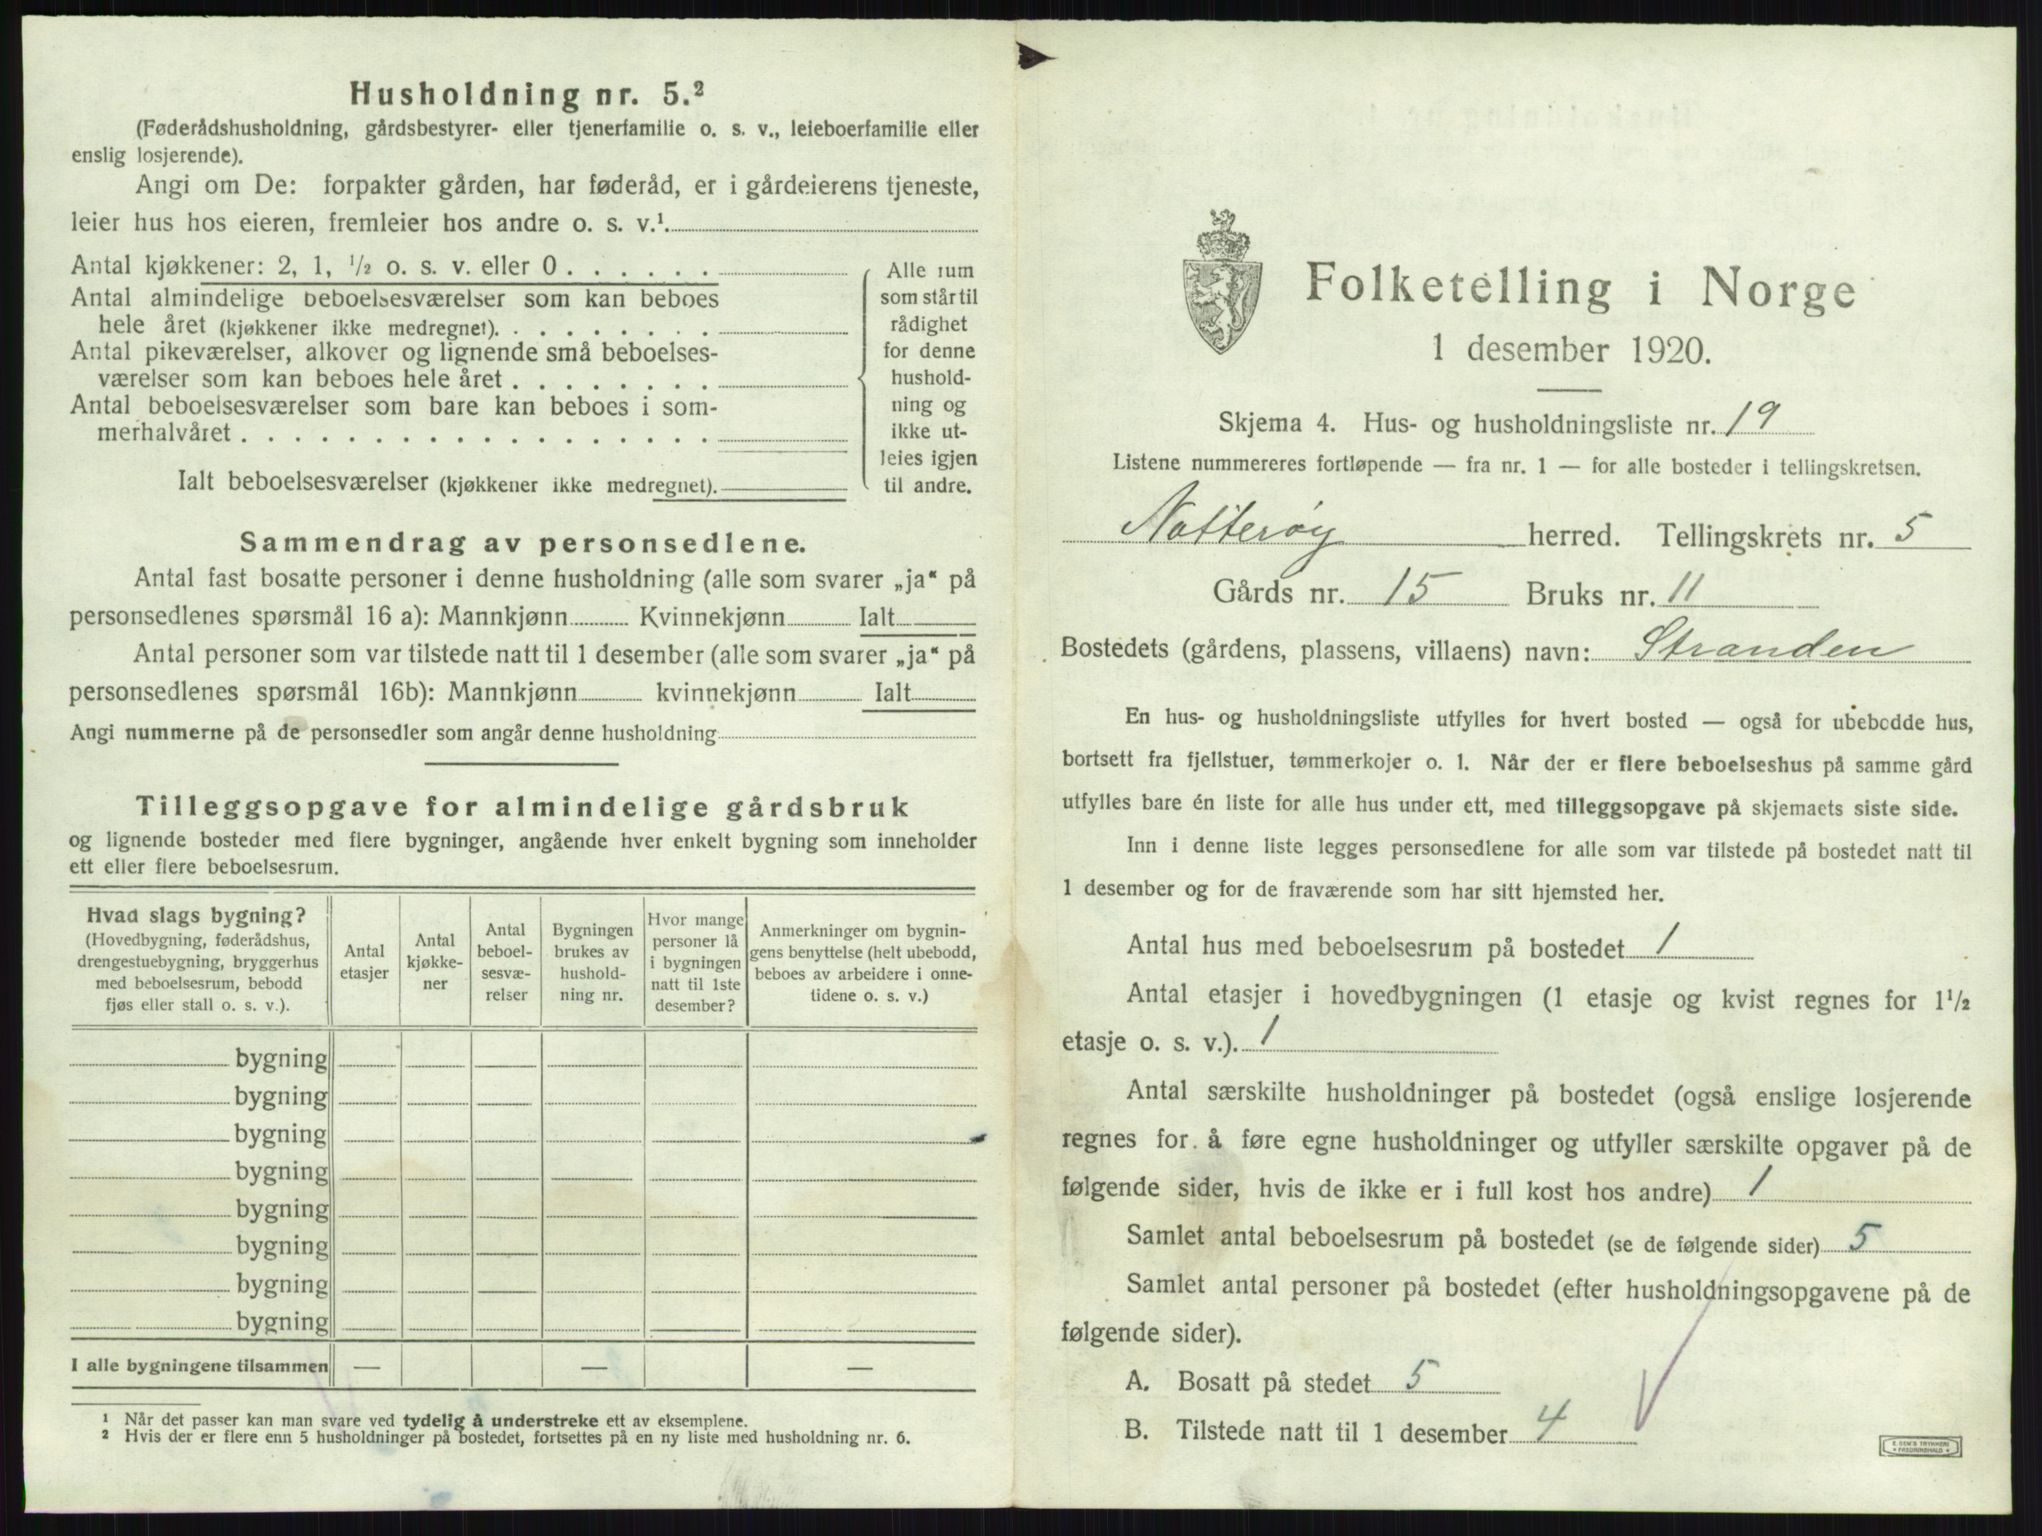 Husholdning nr. 5.²
(Føderådshusholdning, gårdsbestyrer- eller tjenerfamilie o. s. v., leieboerfamilie eller
enslig losjerende).
Angi om De: forpakter gården, har føderåd, er i gårdeierens tjeneste,
leier hus hos eieren, fremleier hos andre o. s. v.¹.
Antal kjøkkener: 2, 1, ½ o. s. v. eller 0 . . . . . .
Antal almindelige beboelsesværelser som kan beboes
hele året (kjøkkener ikke medregnet). . . . . . . . .
Antal pikeværelser, alkover og lignende små beboelses-
værelser som kan beboes hele året . . . . . . . .
Antal beboelsesværelser som bare kan beboes i som-
merhalvåret . . . . . . . . . . . . . . . . . .
Ialt beboelsesværelser (kjøkkener ikke medregnet).
Alle rum
som står til
rådighet
for denne
hushold-
ning og
ikke ut-
leies igjen
til andre.
Sammendrag av personsedlene.
Antal fast bosatte personer i denne husholdning (alle som svarer „ja“ på
personsedlenes spørsmål 16 a): Mannkjønn Kvinnekjønn Ialt
Antal personer som var tilstede natt til 1 desember (alle som svarer „ja“ på
personsedlenes spørsmål 16b): Mannkjønn kvinnekjønn Ialt
Angi nummerne på de personsedler som angår denne husholdning
Tilleggsopgave for almindelige gårdsbruk
og lignende bosteder med flere bygninger, angående hver enkelt bygning som inneholder
ett eller flere beboelsesrum.
Hvad slags bygning?
(Hovedbygning, føderådshus,
drengestuebygning, bryggerhus
med beboelsesrum, bebodd
fjøs eller stall o. s. v.).
Antal
etasjer
Antal
kjøkke-
ner
Antal
beboel-
sesvæ-
relser
Bygningen
brukes av
hushold-
ning nr.
Hvor mange
personer lå
i bygningen
natt til 1ste
desember?
Anmerkninger om bygnin-
gens benyttelse (helt ubebodd,
beboes av arbeidere i onne-
tidene o. s. v.)
bygning
bygning
bygning
bygning
bygning
bygning
bygning
bygning
I alle bygningene tilsammen — — —
¹ Når det passer kan man svare ved tydelig å understreke ett av eksemplene.
² Hvis der er flere enn 5 husholdninger på bostedet, fortsettes på en ny liste med husholdning nr. 6.
Folketelling i Norge
1 desember 1920.
Skjema 4. Hus- og husholdningsliste nr. 19
Listene nummereres fortløpende — fra nr. 1 — for alle bosteder i tellingskretsen.
Nøtterøy herred. Tellingskrets nr. 5
Gårds nr. 15 Bruks nr. 11
Bostedets (gårdens, plassens, villaens) navn: Stranden
En hus- og husholdningsliste utfylles for hvert bosted — også for ubebodde hus,
bortsett fra fjellstuer, tømmerkojer o. l. Når der er flere beboelseshus på samme gård
utfylles bare én liste for alle hus under ett, med tilleggsopgave på skjemaets siste side.
Inn i denne liste legges personsedlene for alle som var tilstede på bostedet natt til
1 desember og for de fraværende som har sitt hjemsted her.
Antal hus med beboelsesrum på bostedet 1
Antal etasjer i hovedbygningen (1 etasje og kvist regnes for 1½
etasje o. s. v.). 1
Antal særskilte husholdninger på bostedet (også enslige losjerende
regnes for å føre egne husholdninger og utfyller særskilte opgaver på de
følgende sider, hvis de ikke er i full kost hos andre) 1
Samlet antal beboelsesrum på bostedet (se de følgende sider) 5
Samlet antal personer på bostedet (efter husholdningsopgavene på de
følgende sider).
A. Bosatt på stedet 5
B. Tilstede natt til 1 desember 4
E. SEM'S TRYKKERI
FREDRIKSHALD